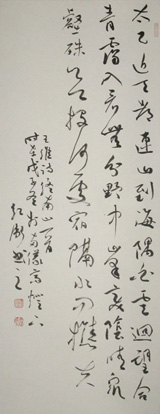 太乙近天都連山到海隅白雲迴望合
青靄入看無分野中峰變陰晴衆
壑殊欲投何處宿隔水問樵夫
王維詩終南山一首
時壬戌冬